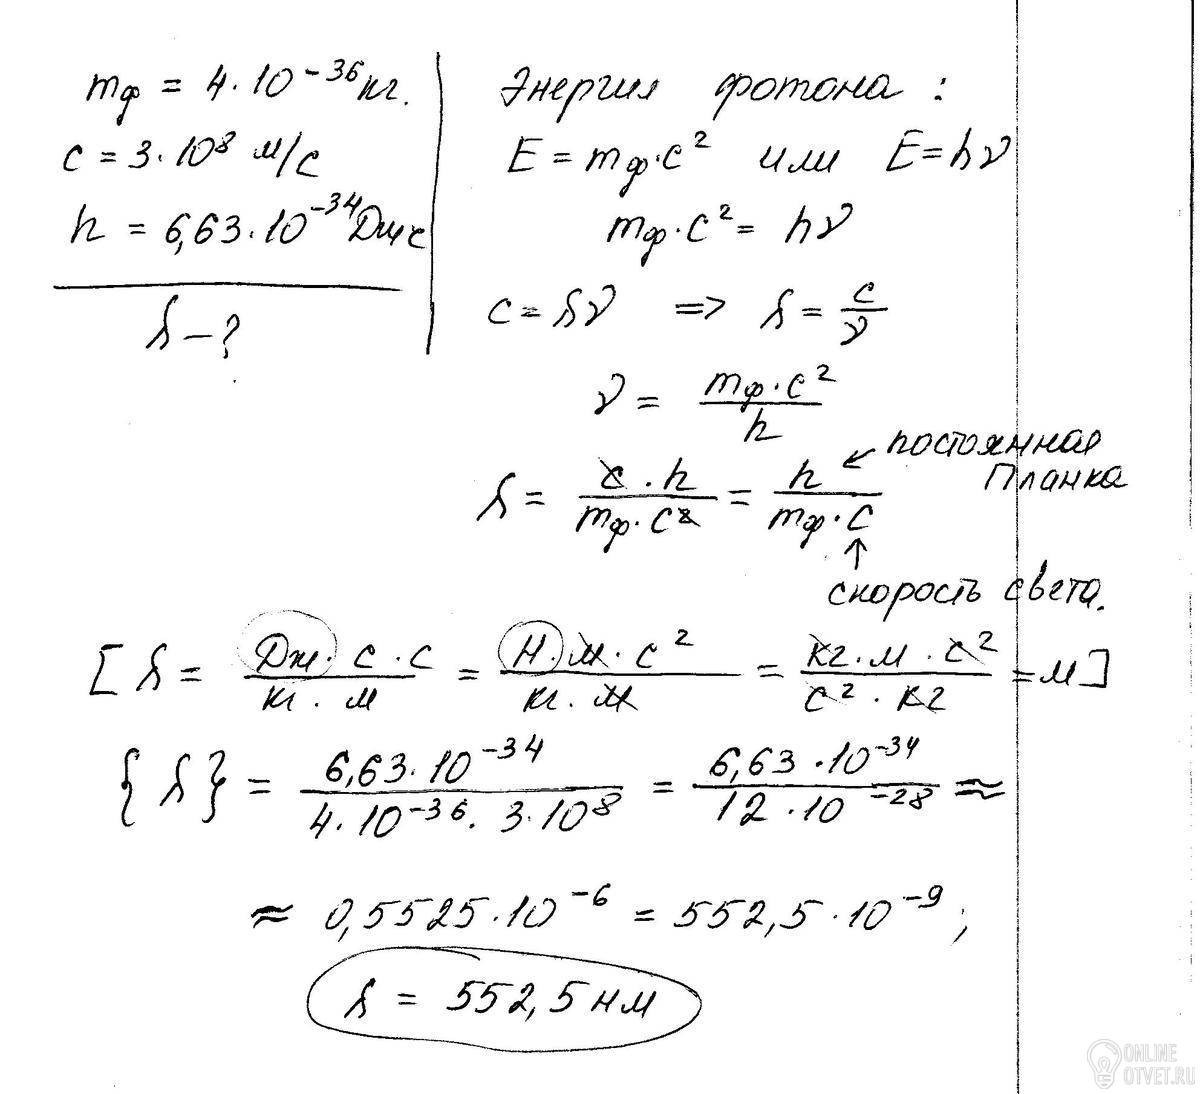 mф = 4·10⁻³⁶ кг.
c = 3·10⁸ м/с
h = 6,63·10⁻³⁴ Дж с
λ – ?
Энергия фотона :
E = mф·c² или E = hν
mф·c² = hν
c = λν => λ = c/ν
ν = mф·c²/h
λ = c·h/mф·c² = h/mф·c ← постоянная Планка
↑
скорость света.
[λ = Дж·с·с/кг·м = Н·м·с²/кг·м = кг·м·с²/с²·кг = м]
{λ} = 6,63·10⁻³⁴/4·10⁻³⁶·3·10⁸ = 6,63·10⁻³⁴/12·10⁻²⁸ ≈
≈ 0,5525·10⁻⁶ = 552,5·10⁻⁹ ;
λ = 552,5 нм
ONLINE
OTVET.RU